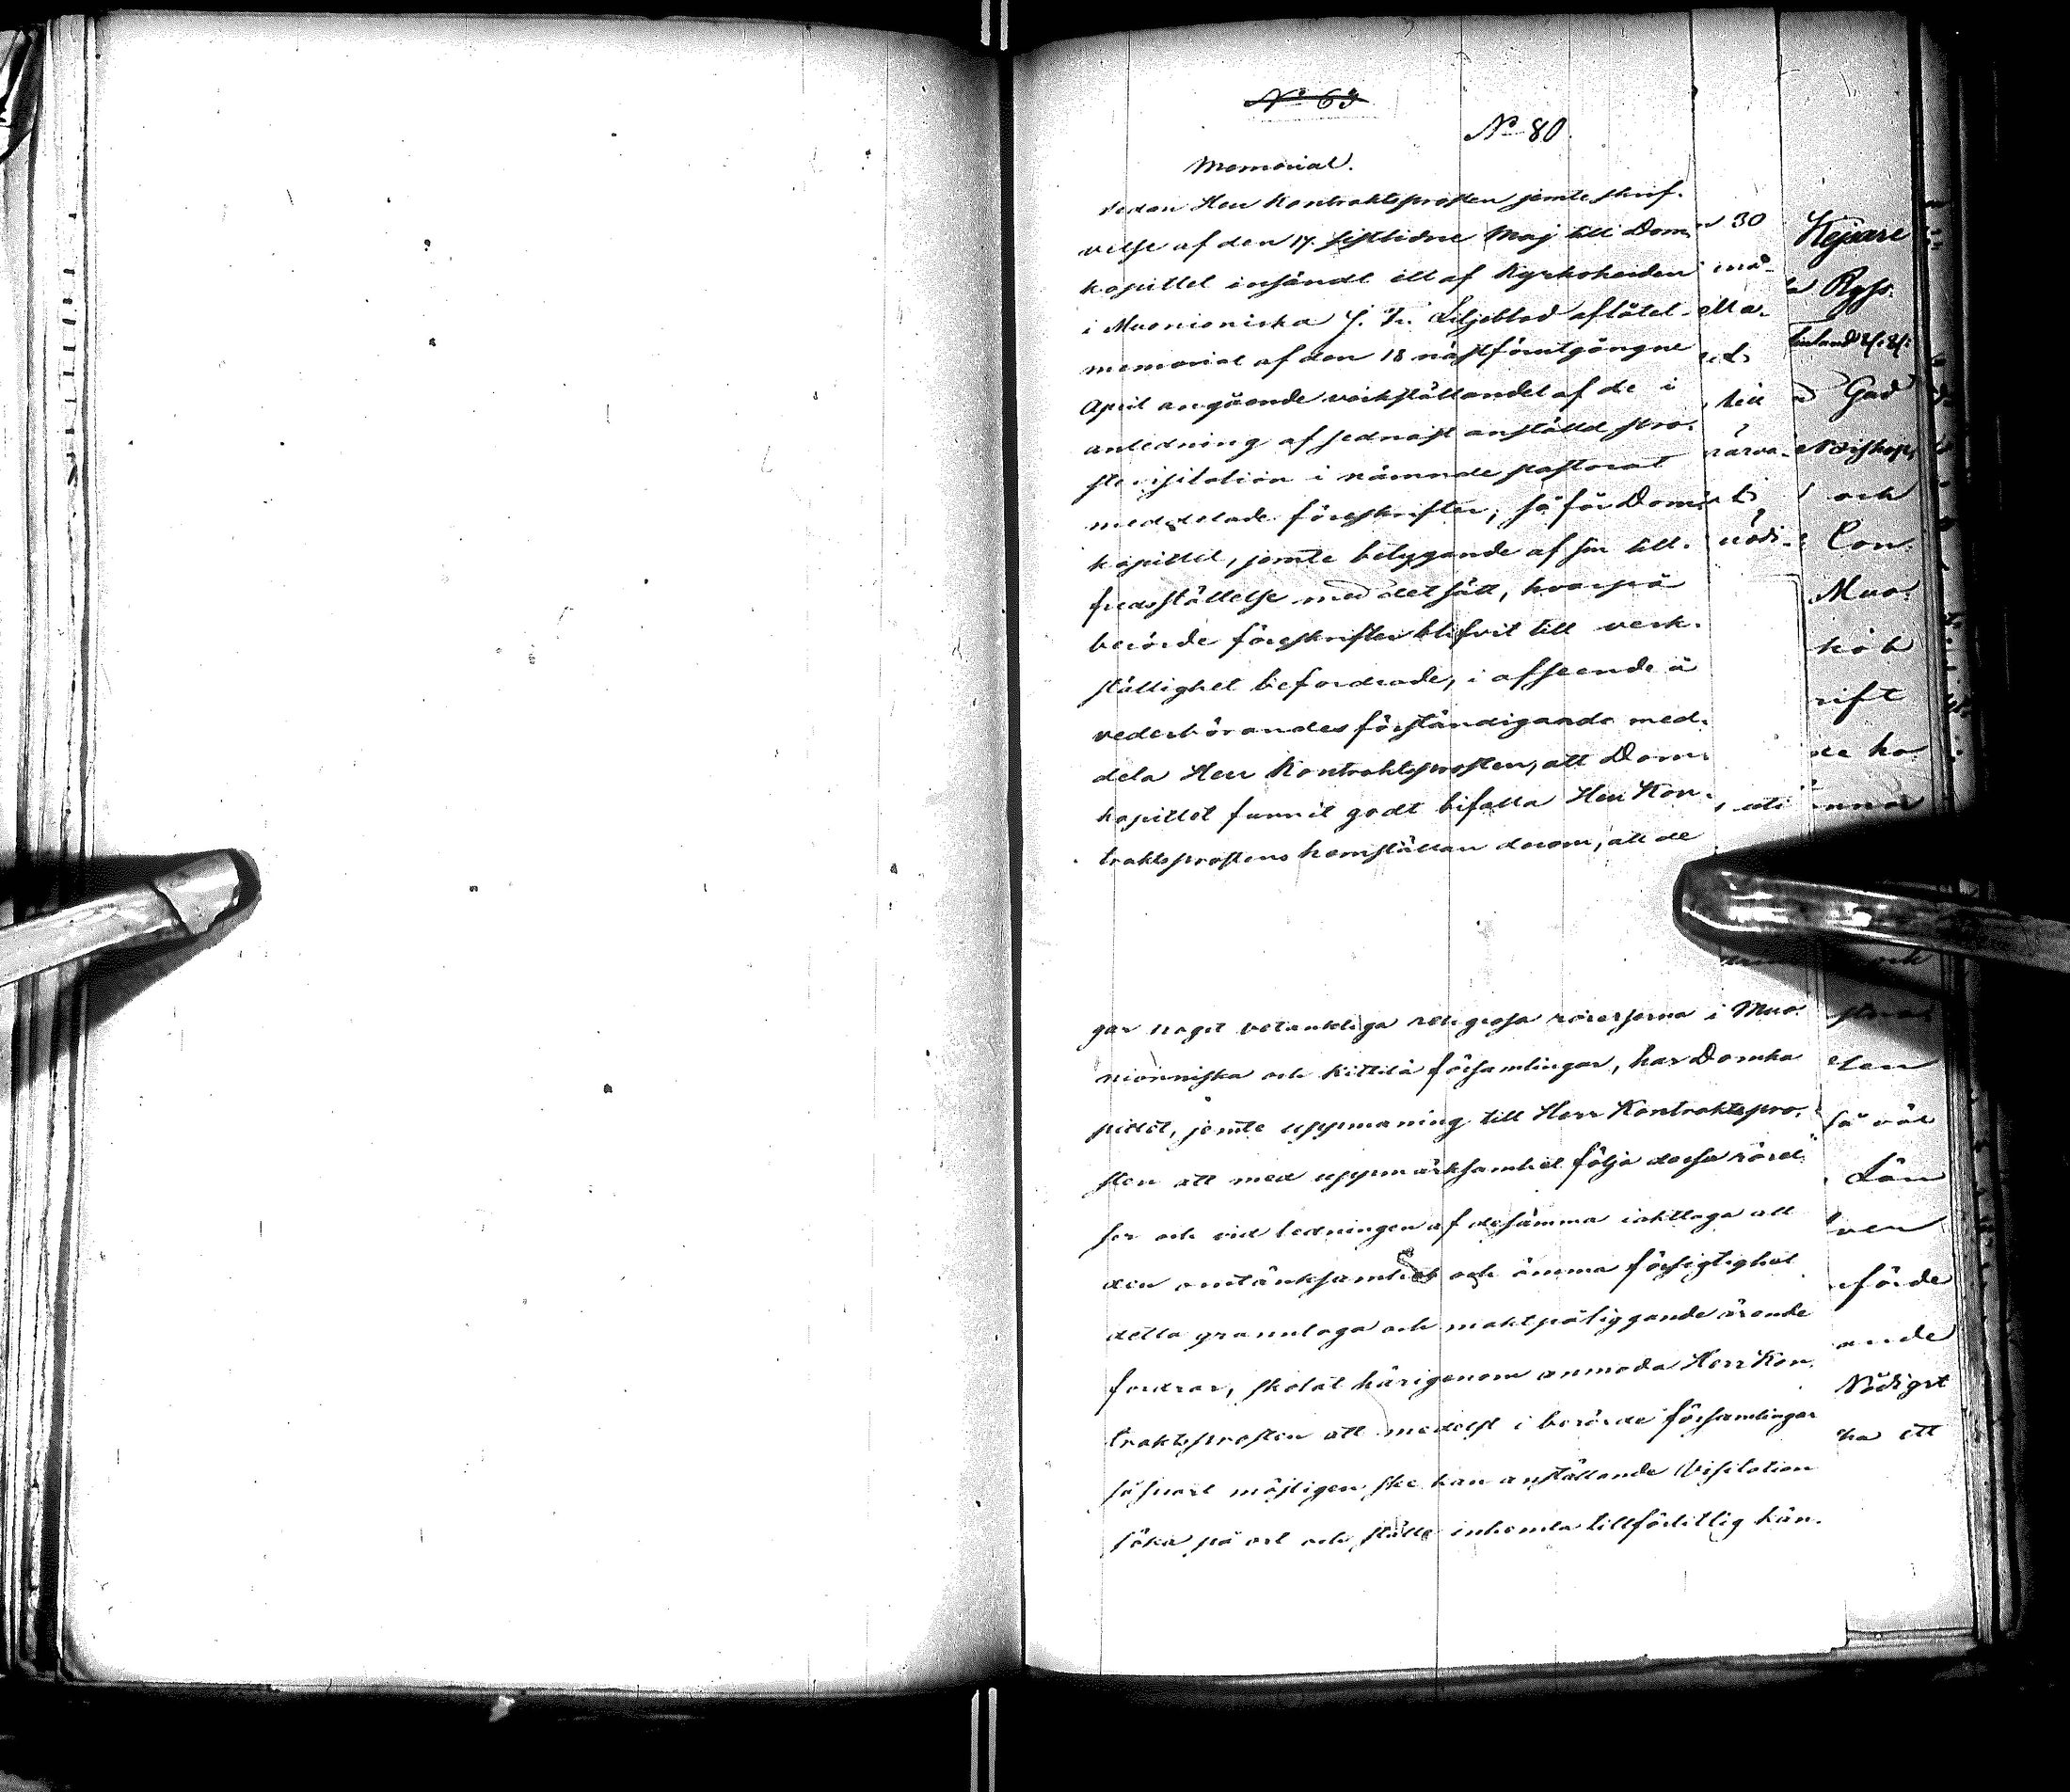 No 63
No 80.
Memorial.
Sedan Herr Kontraktsprosten jemte skrif-
velse af den 17 sistlidne Maj till Dom-
kapitlet insändt ett af Kyrkoherden
i Muonioniska J. F. Liljeblad aflåtet
memorial af den 18 nästförutgångne
April angående verkställandet af de i
anledning af sednast anställd pro-
stevisitation i nämnde pastorat
meddelade föreskrifter; så får Dom-
kapitlet, jemte betygande af sin till-
fredsställelse med det sätt, hvarpå
berörde föreskrifter blifvit till verk-
ställighet befordrade, i afseende å
vederbörandes förständigande med-
dela Herr Kontraktsprosten, att Dom-
kapitlet funnit godt bifalla Herr Kon-
traktsprostens hemställan derom, att de
gar något betänkliga religiosa rörelserna i Muo-
nionniska och Kittilä församlingar, har Domka
pitlet, jemte uppmaning till Herr Kontraktspro-
sten att med uppmärksamhet följa dessa rörel-
ser och vid ledningen af desamma iakttaga all
den omtänksamhet och ömma försigtighet
detta grannlaga och maktpåliggande ärende
fordrar, skolat härigenom anmoda Herr Kon-
traktsprosten att medelst i berörde församlingar
såsnart möjligen ske kan anställande Visitation
söka på ort och ställe inhemta tillförlitlig kän-
30
till
Kejsare
Finland
Gud
och
Con-
Muo-
rift
de ha
så väl
Län
förde
ande
Nådigst
ha ett